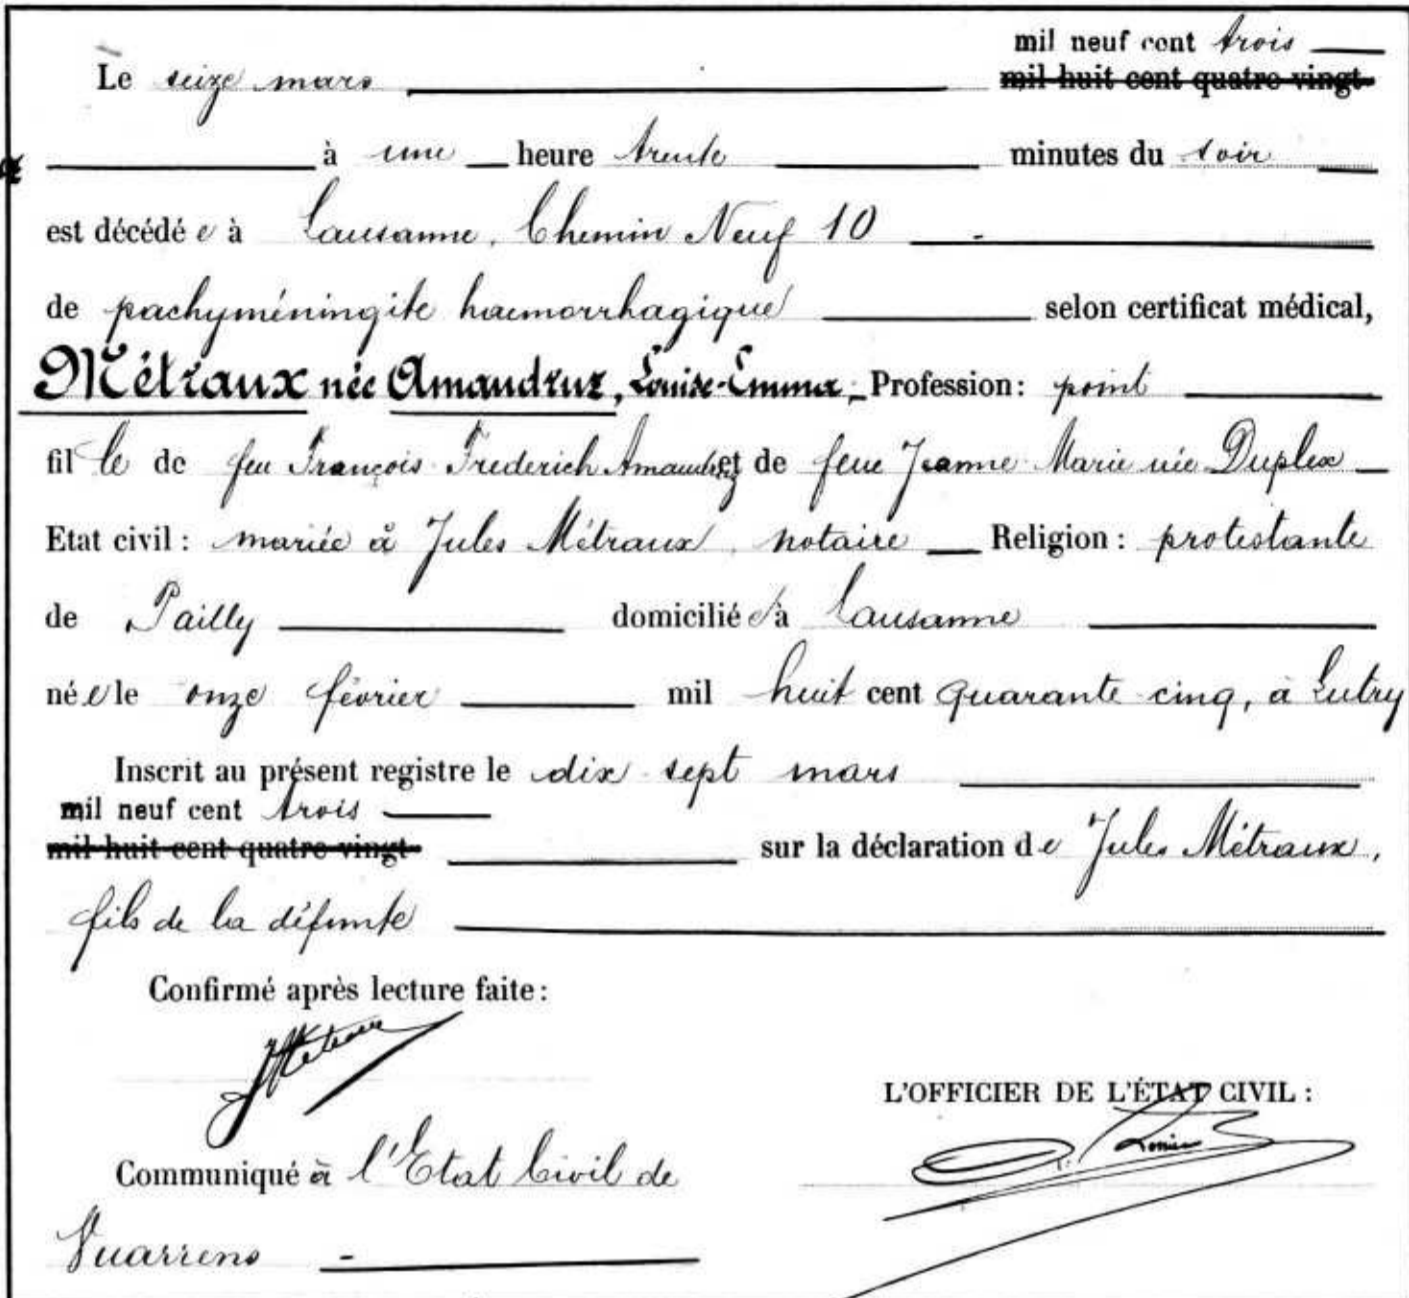 mil neuf cent trois
Le seize mars mil huit cent quatre vingt
à une heure trente minutes du soir
est décédé e à Lausanne, Chemin Neuf 10
de pachyméningite haemorrhagique selon certificat médical,
Métraux née Amaudruz, Louise-Emma, Profession: point
fil le de feu François Frederich Amaudruz et de feue Jeanne Marie née Duplex
Etat civil: mariée à Jules Métraux, notaire Religion: protestante
de Pailly domicilié e à Lausanne
né e le onze février mil huit cent quarante cinq, à Lutry
Inscrit au présent registre le dix sept mars
mil neuf cent trois
mil huit cent quatre vingt sur la déclaration de Jules Métraux,
fils de la défunte
Confirmé après lecture faite:
JMétraux
L'OFFICIER DE L'ÉTAT CIVIL:
Communiqué à l'Etat Civil de
Vuarrens -